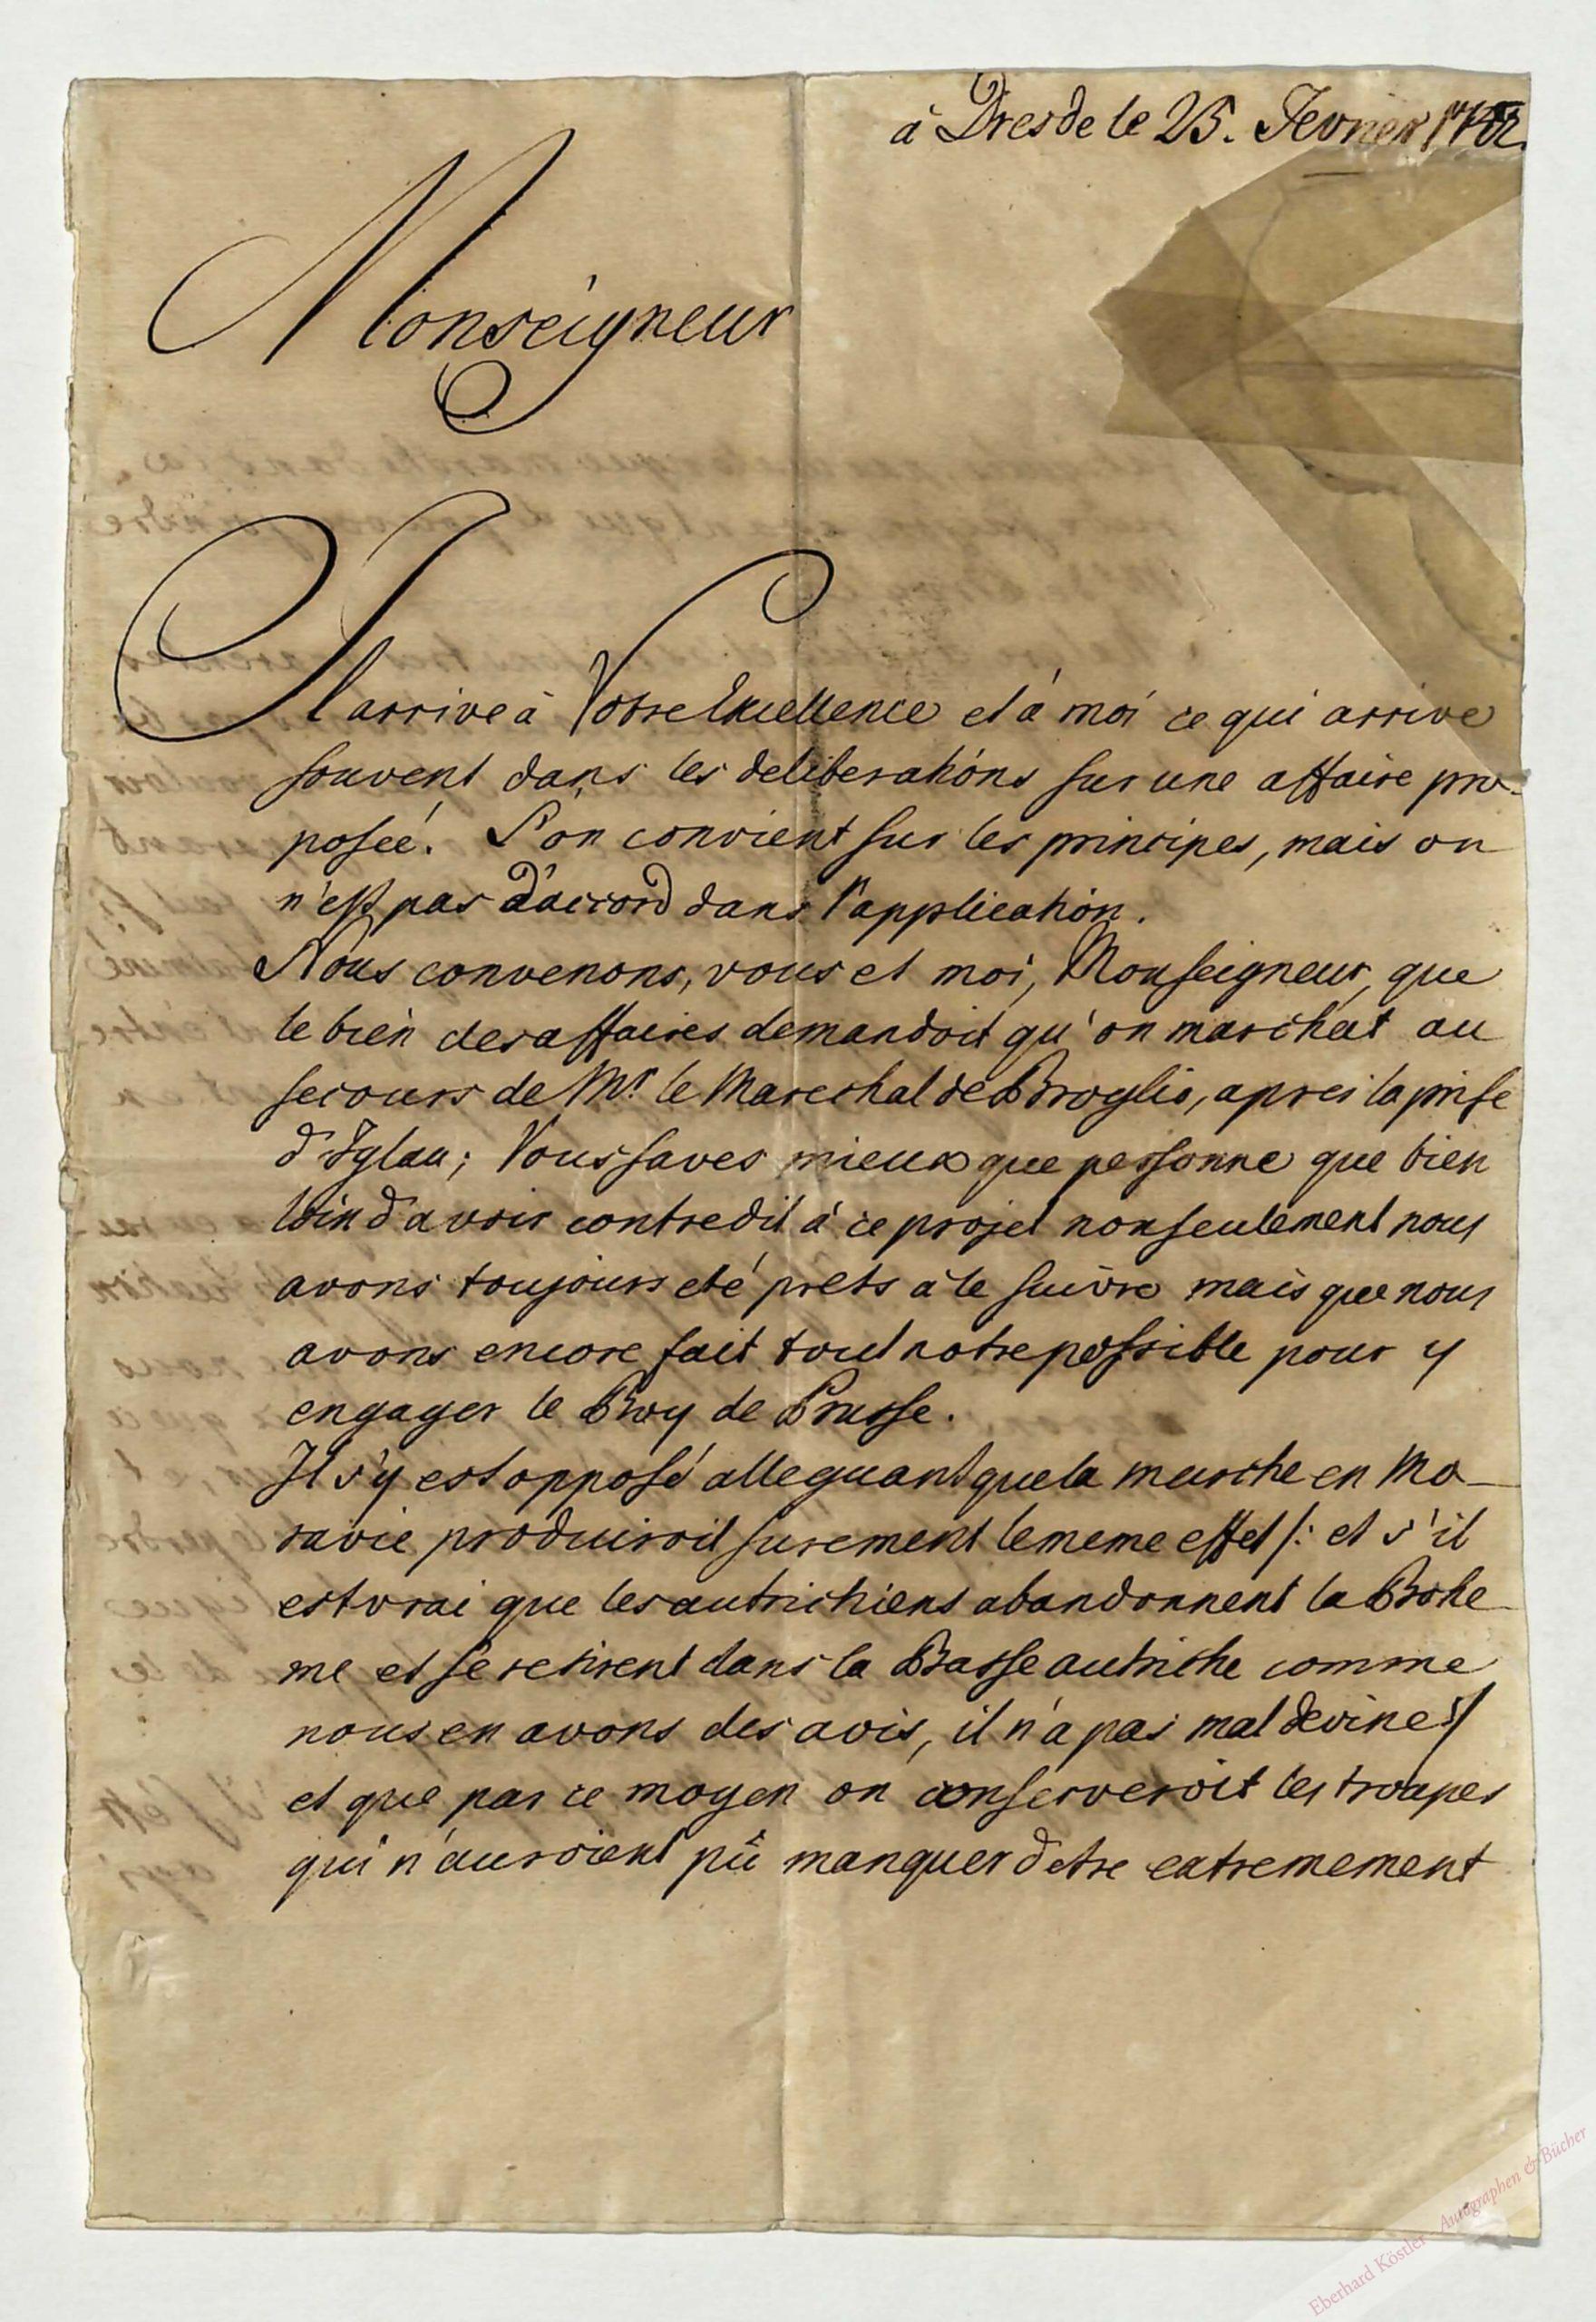 à Dresde le 25. Fevrier 1742.
Monseigneur
Il arrive à Votre Excellence et à moi ce qui arrive
souvent dans les deliberations sur une affaire pro-
posée. L'on convient sur les principes, mais on
n'est pas d'accord dans l'application.
Nous convenons, vous et moi, Monseigneur, que
le bien des affaires demandoit qu'on marchat au
secours de Mr. le Marechal de Broglio, apres la prise
d'Iglau; Vous saves mieux que personne que bien
loin d'avoir contredit à ce projet non seulement nous
avons toujours eté prets à le suivre mais que nous
avons encore fait tout notre possible pour y
engager le Roy de Prusse.
Il s'y est opposé alleguant que la marche en Mo-
ravie produiroit surement le meme effet /: et s'il
est vrai que les autrichiens abandonnent la Bohe-
me et se retirent dans la Basse autriche comme
nous en avons des avis, il n'a pas mal deviné :/
et que par ce moyen on conserveroit les troupes
qui n'auroient pû manquer d'etre extremement
Eberhard Köstler - Autographen & Bücher